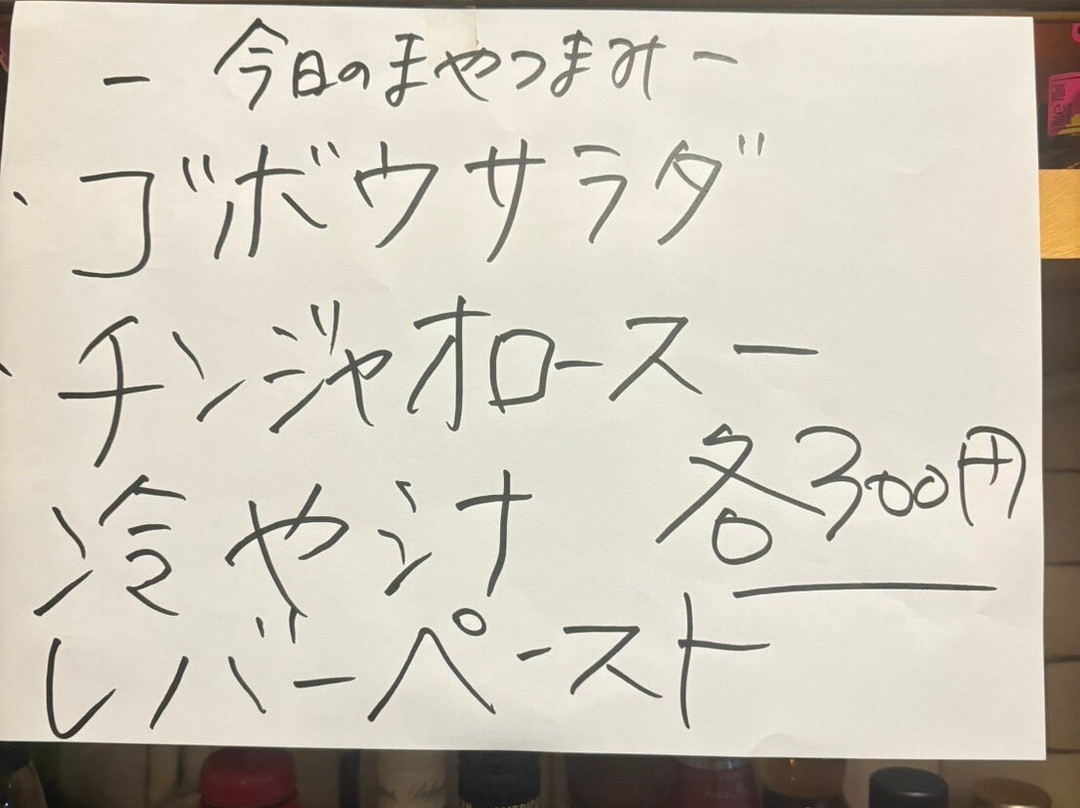 ー 今日のまやつまみ ー
ゴボウサラダ
チンジャオロースー
冷や汁
各300円
レバーペースト